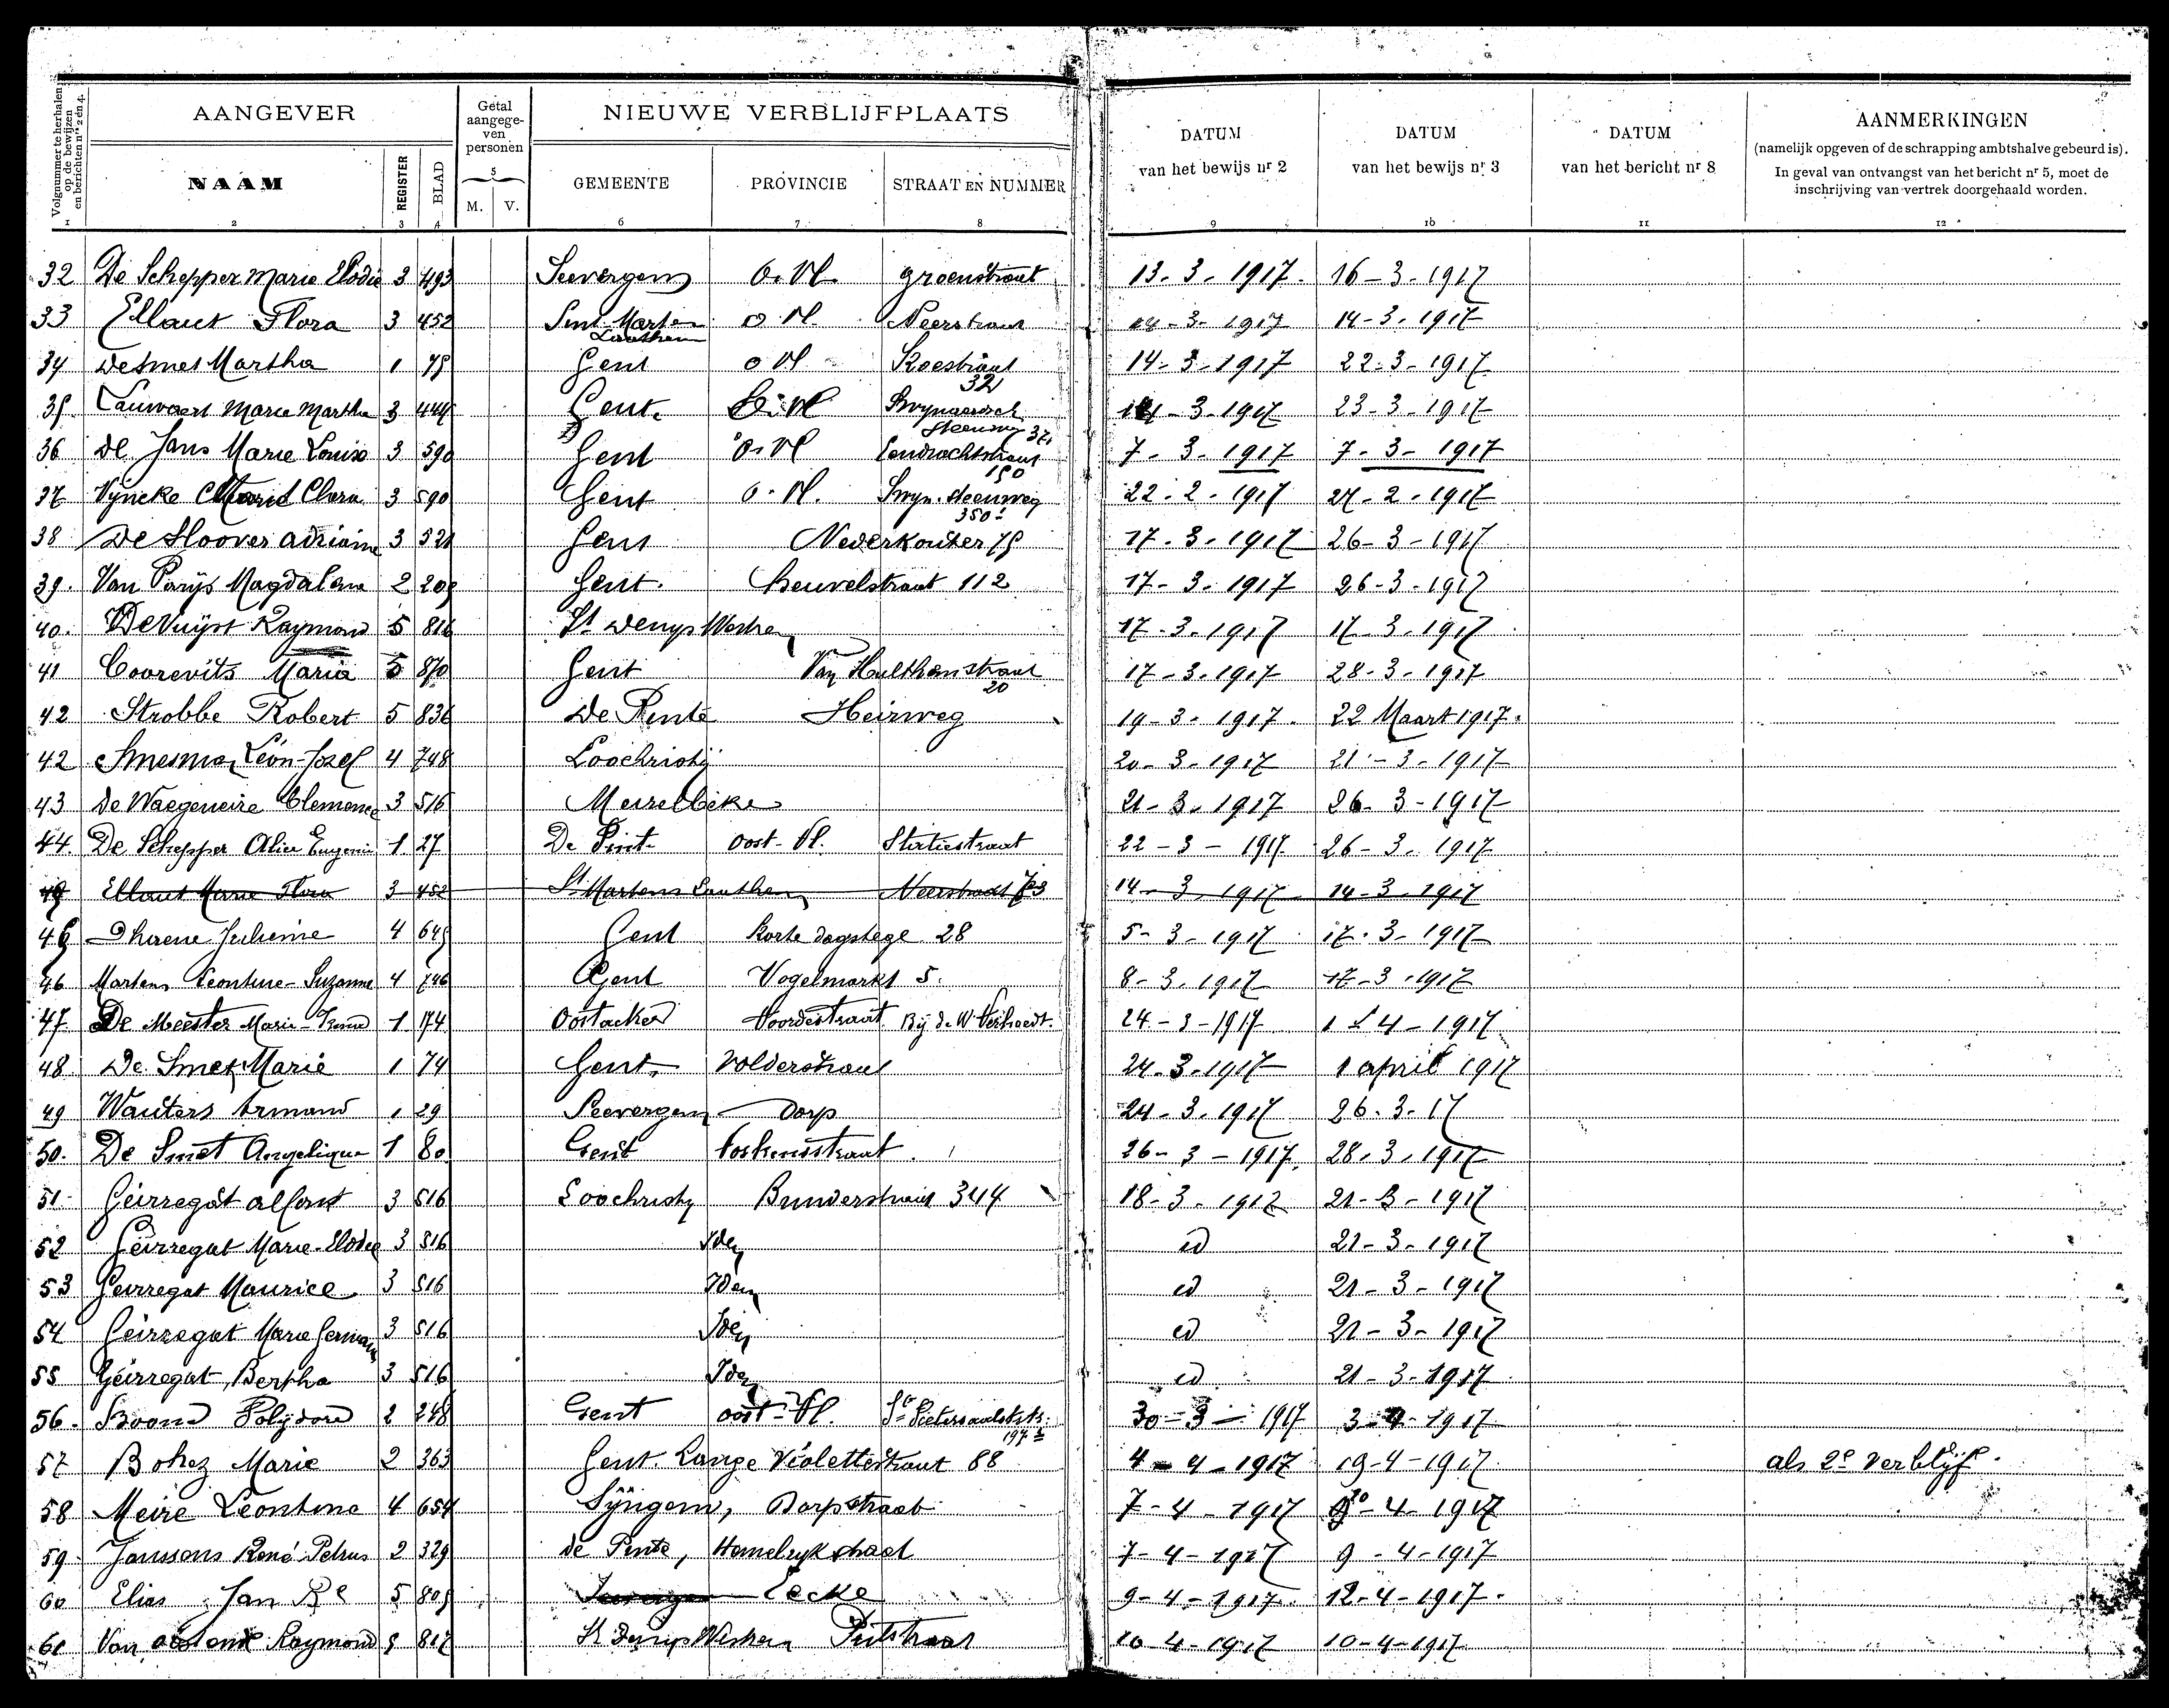 Volgnummer te herhalen op de bewijzen en berichten nrs 2 en 4.
AANGEVER
Getal aangegeven personen
NIEUWE VERBLIJFPLAATS
DATUM van het bewijs nr 2
DATUM van het bewijs nr 3
DATUM van het bericht nr 8
AANMERKINGEN
(namelijk opgeven of de schrapping ambtshalve gebeurd is).
In geval van ontvangst van het bericht nr 5, moet de
inschrijving van vertrek doorgehaald worden.
NAAM REGISTER BLAD 5 M. V. GEMEENTE PROVINCIE STRAAT EN NUMMER
1 2 3 4 6 7 8 9 10 11 12
32 De Schepper Marie Elodie 3 493 Seevergem O. Vl. groenstraat 13-3-1917 16-3-1917
33 Ellaut Flora 3 452 Sint Marten Laathem O. Vl. Neerstraat 14-3-1917 14-3-1917
34 De Smet Martha 1 75 Gent O Vl Koestraat 32 14-3-1917 22-3-1917
35 Cauwaert Marie Martha 3 444 Gent O. Vl steenweg 37 14-3-1917 23-3-1917
36 De Jans Marie Louise 3 590 Gent O. Vl Eendrachtstraat 150 7-3-1917 7-3-1917
37 Vyncke Clara 3 590 Gent O. Vl. Swyn. steenweg 350 22-2-1917 27-2-1917
38 De Hoover Adriaine 3 521 Gent Nederkouter 75 17-3-1917 26-3-1917
39. Van Parijs Magdalena 2 205 Gent Heuvelstraat 112 17-3-1917 26-3-1917
40. De Vuijst Raymond 5 816 St Denijs Westrem 17-3-1917 17-3-1917
41 Coorevits Maria 5 870 Gent Van Hulthemstraat 20 17-3-1917 28-3-1917
42 Strobbe Robert 5 836 De Pinte Heirweg 19-3-1917 22 Maart 1917.
42 Léon-Jozef 4 748 Loochristij 20-3-1917 21-3-1917
43 De Waegeneire Clemence 3 516 Meirelbeke 21-3-1917 26-3-1917
44. De Schepper Alice Eugenie 1 27 De Pint- Oost-Vl. Statiestraat 22-3-1917 26-3-1917
Ellaut Marie Flora 3 452 St Martens Laathem Neerstraat 73 14-3-1917 14-3-1917
45 Dhaene Julienne 4 645 Gent Korte dagstege 28 5-3-1917 17-3-1917
46 Martens Leontine-Suzanne 4 746 Gent Vogelmarkt 5. 8-3-1917 17-3-1917
47. De Meester Marie-Irma 1 174 Oostacker Voordestraat Bij de W. Verhaedt. 24-3-1917 1-4-1917
48 De Smet Marie 1 74 Gent Volderstraat 24-3-1917 1 april 1917
49 Wauters Armand 1 29 Seevergem Dorp 24-3-1917 26-3-17
50. De Smet Angelique 1 80 Gent 1 26-3-1917. 28-3-1917
51 Geirregat Alfons 3 516 Loochristij Bunderstraat 344 18-3-1917 21-3-1917
52 Geirregat Marie-Elodie 3 516 Idem id 21-3-1917
53 Geirregat Maurice 3 516 Idem id 21-3-1917
54 Geirregat Marie Germain 3 516 Idem id 21-3-1917
55 Geirregat, Bertha 3 516 Idem id 21-3-1917
56. Boone Polijdore 2 248 Gent Oost-Vl. St Pietersaalststr. 197 30-3-1917 3-4-1917
57 Bohez Marie 2 363 Gent Lange Violettestraat 88 4-4-1917 19-4-1917 als 2e verblijf.
58 Meire Leontine 4 654 Syngem, Dorpstraat 7-4-1917 10-4-1917
59. Janssens René Petrus 2 329 de Pinte, Hemelryk straat 7-4-1917 9-4-1917
60 Elias Jan Bte 5 805 Seevergem Eecke 9-4-1917. 12-4-1917.
61 Van Oostende Raymond 5 817 St Denys Westrem Putstraat 10-4-1917 10-4-1917